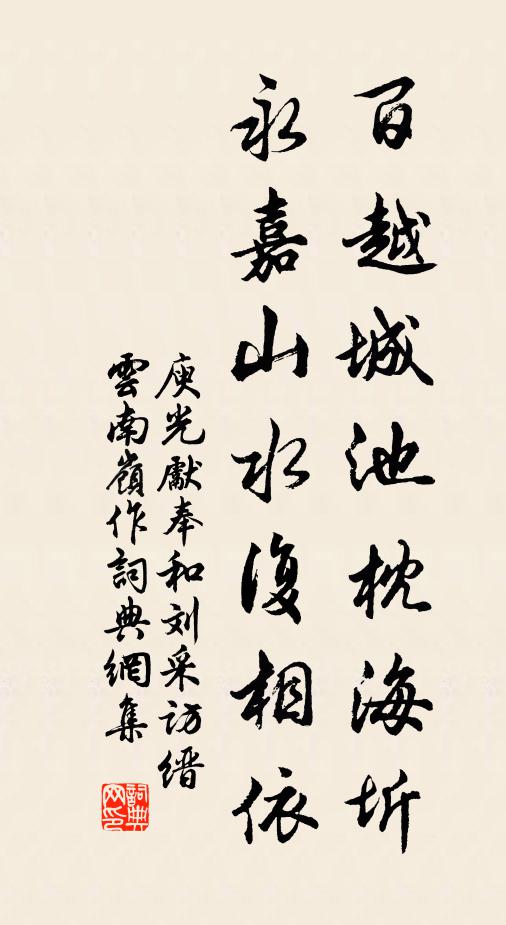 百越城池枕海圻
永嘉山水復相依
庾光獻奉和刘采访缙
雲南嶺作詞典網集
詞典网印